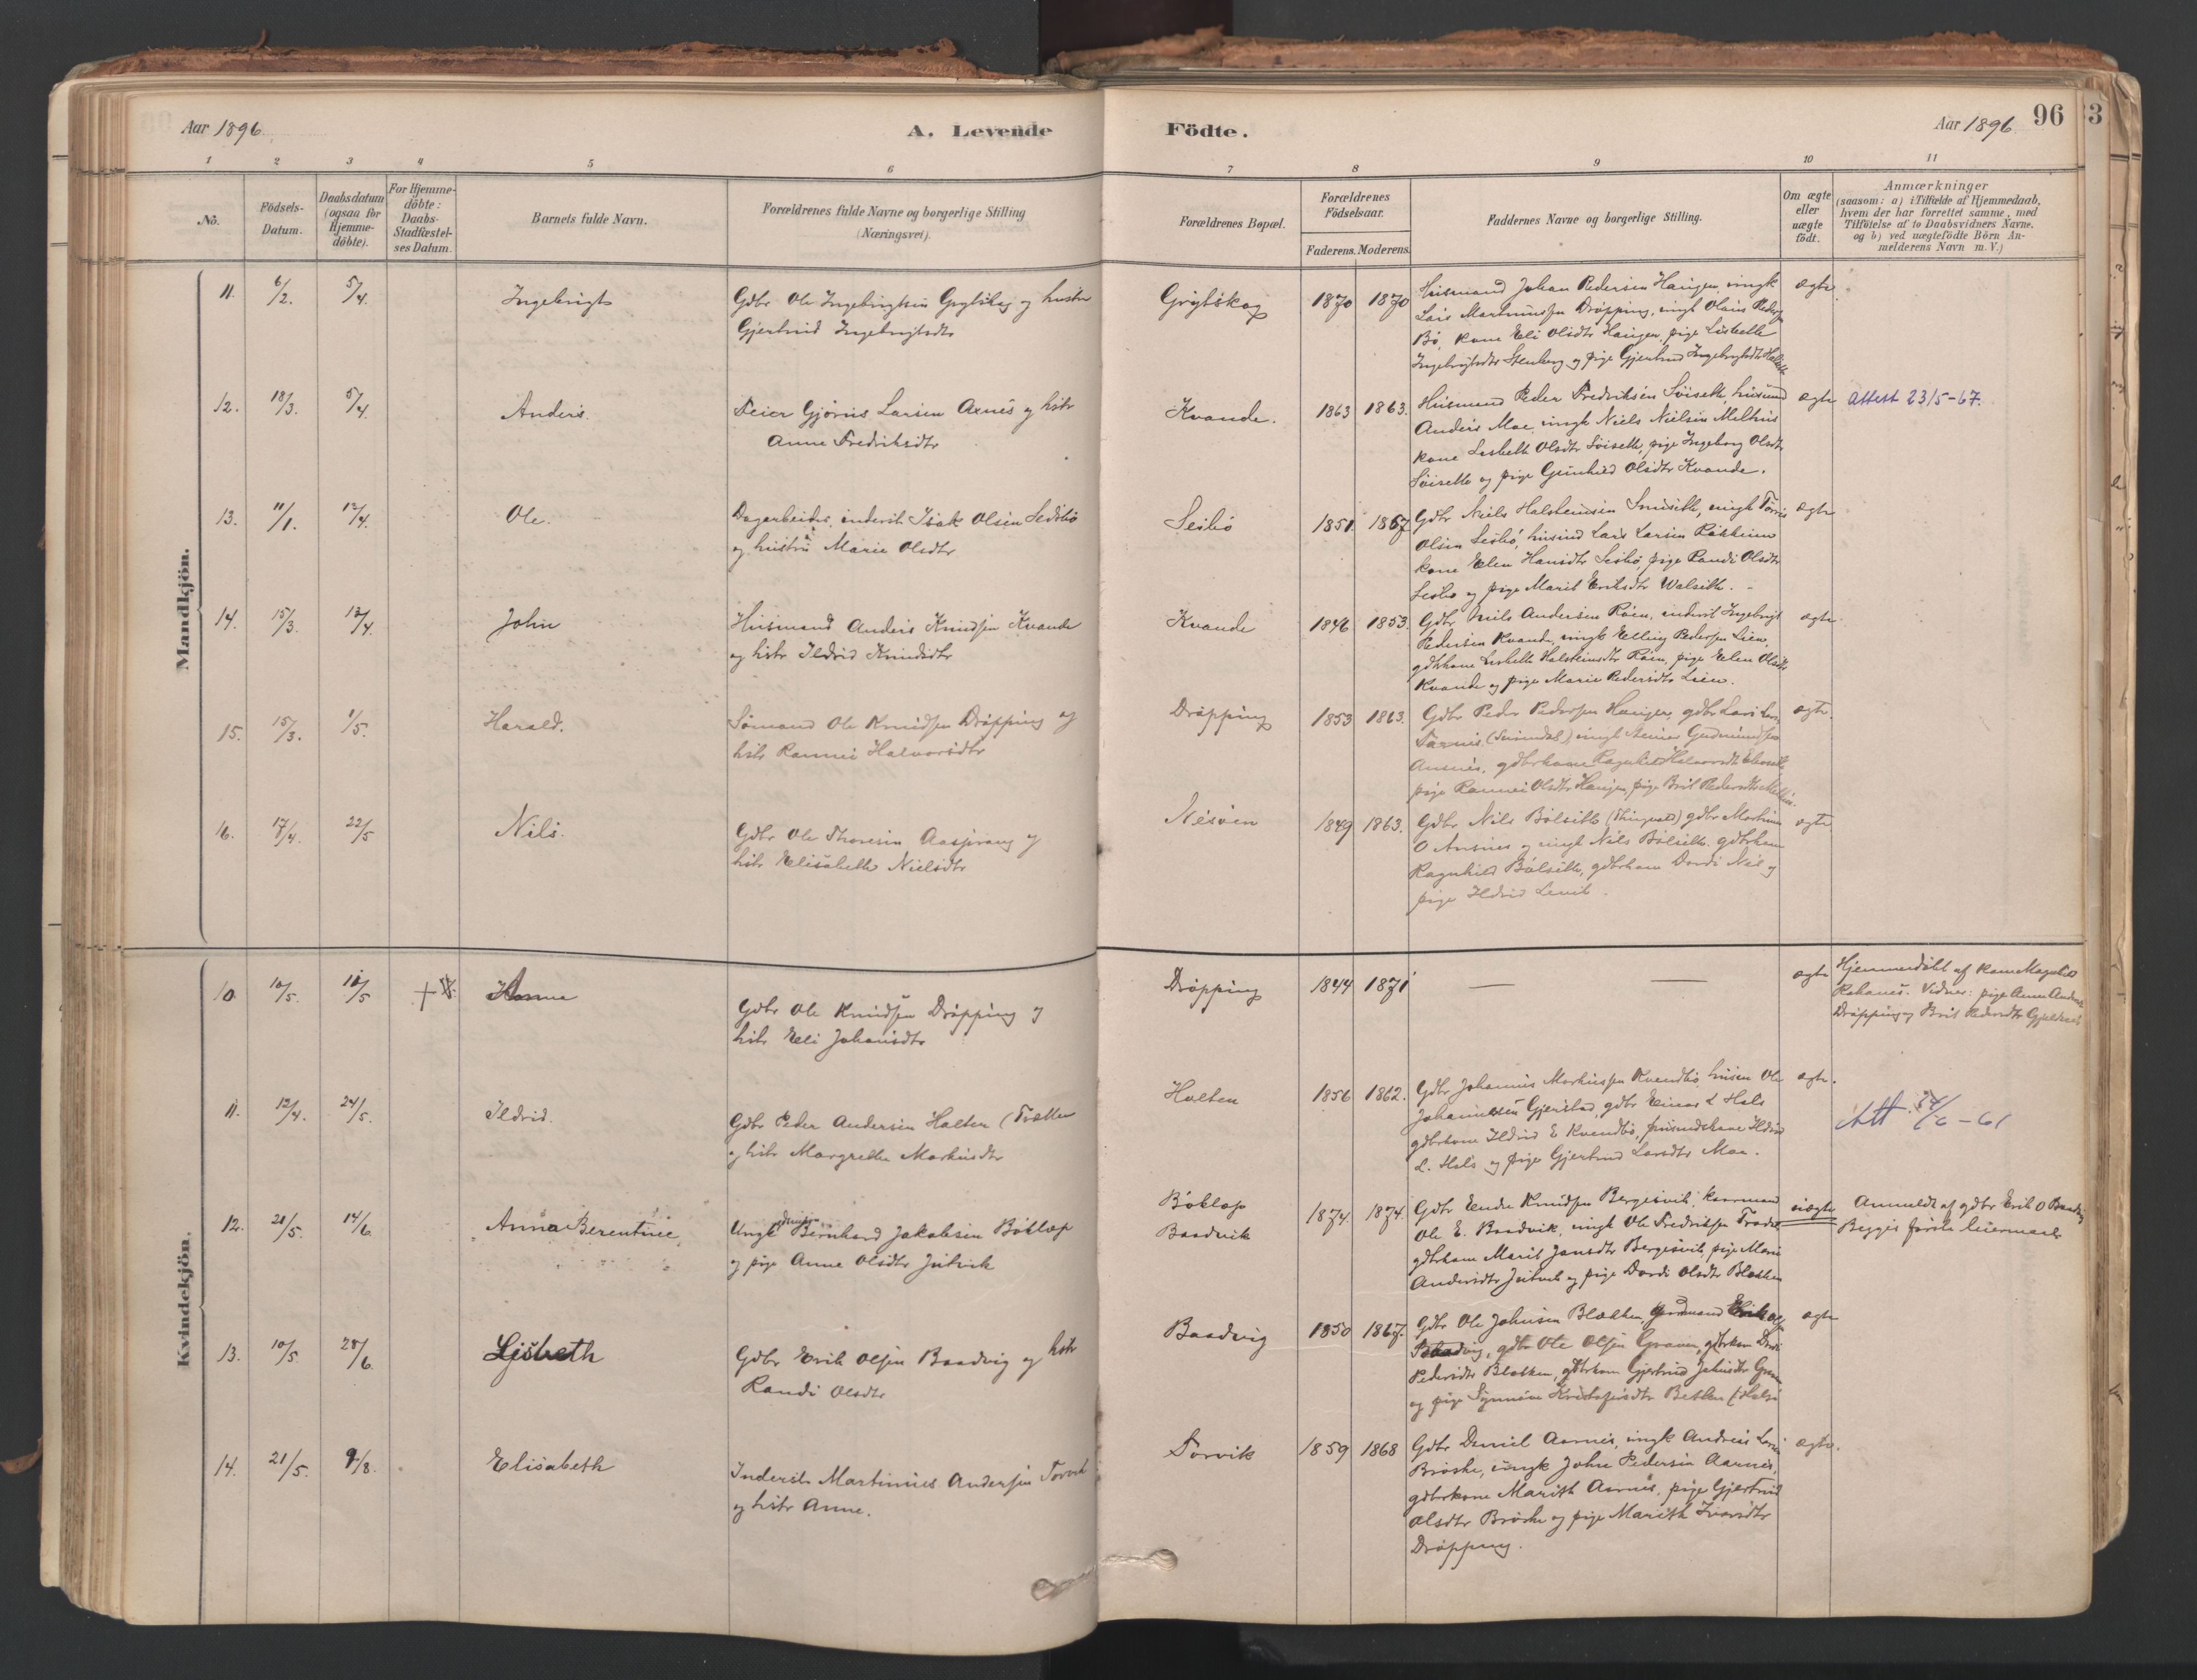 Aar 1896.
A. Levende
Födte.
Aar 1896
96
33
1 2 3 4 5 6 7 8 9 10 11
No.
Födsels-
Datum.
Daabsdatum
(ogsaa for
Hjemme-
döbte).
For Hjemme-
döbte:
Daabs-
Stadfæstel-
ses Datum.
Barnets fulde Navn.
Forældrenes fulde Navne og borgerlige Stilling
(Næringsvei).
Forældrenes Bopæl.
Forældrenes
Födselsaar.
Faderens. Moderens.
Faddernes Navne og borgerlige Stilling.
Om ægte
eller
uægte
födt.
Anmærkninger
(saasom: a) i Tilfælde af Hjemmedaab,
hvem der har forrettet samme, med
Tilföielse af to Daabsvidners Navne.
og b) ved uægtefödte Börn An-
melderens Navn m. V.)
Mandkjön.
11. 6/2. 5/4. Ingebrigt
Gdbr Ole Ingebrigtsen Grytskog og hustru
Gjertrud Ingebrigtsdtr
Grytskog 1870 1870
Husmand Johan Pedersen Haugen, ungk
Lars Martinussen Dröpping, ungk Olaus Peders
Bö, kone Eli Olsdtr Haugen, pige Lisbeth
Ingebrigtsdtr Stenberg og pige Gjertrud Ingebrigtsdtr
ægte
12. 18/3. 5/4. Anders.
Feier Gjörus Larsen Axnes og hstr
Anne Fredriksdtr
Kvande. 1863 1863.
Husmand Peder Fredriksen Söiseth, husmd
Anders Moe, ungk Niels Nielsen Melhus
kone Lisbeth Olsdtr Söiseth, pige Ingeborg Olsdtr
Söiseth og pige Gunhild Olsdtr Kvande.
ægte
Attest 23/5-67.
13. 11/1. 12/4. Ole.
Dagarbeider, inderst Isak Olsen Seisbö
og hustru Marie Olsdtr
Seisbö 1851 1867
Gdbr Niels Halsteinsen Smiseth, ungk Torris
Olsen Seisbö, husmd Lars Larsen Rökkum
kone Elen Hansdtr Seisbö, pige Randi Olsdtr
Seisbö og pige Marit Eriksdtr Walseth. -
ægte
14. 15/3. 12/4. John
Husmand Anders Knudsen Kvande
og hstr Ildrid Knudsdtr
Kvande 1846 1853.
Gdbr Nils Andersen Röen, inderst Ingebrigt
Pedersen Kvande, ungk Elling Pedersen Lien,
gdbrkone Lisbeth Halsteinsdtr Röen, pige Elen Olsdtr
Kvande og pige Marie Pedersdtr Lien.
ægte
15. 15/3. 1/5. Harald.
Sömand Ole Knudsen Dröpping og
hstr Rannei Halvorsdtr
Dröpping 1853 1863.
Gdbr Peder Pedersen Haugen, gdbr Lars
ungk Gudmundsen
gdbrkone Ragnhild Halvorsdtr
pige Rannei Olsdtr Haugen, pige Brit Pedersdtr
ægte.
16. 17/4. 22/5 Nils.
Gdbr Ole Thoresen Aasprang og
hstr Elisabeth Nielsdtr
Nesöien 1849 1863.
Gdbr Nils Bölseth (Thingvold) gdbr Martinus
O Ansnes og ungk Nils Bölseth, gdbrkone
Ragnhild Bölseth, gdbrkone Dordi Nes og
pige Ildrid
ægte
Kvindekjön.
10. 10/5. 10/5 + Hanna
Gdbr Ole Knudsen Dröpping og
hstr Eli Johansdtr
Dröpping 1844 1871
— —
ægte
Hjemmedöbt af kone Magnhild
Vidner: pige Anne Anders
Dröpping og Brit Pedersdtr
11. 12/4. 24/5. Ildrid.
Gdbr Peder Andersen Holten (
og hstr Margrethe Markusdtr
Holten 1856 1862.
Gdbr Johannes Markussen Kvendbö, husm Ole
Johannessen Gjerstad, gdbr Einar L Hals
gdbrkone Ildrid E Kvendbö, husmdskone Ildrid
L. Hals og pige Gjertrud Larsdtr Moe.
ægte.
Att 24/6-61
12. 21/5. 14/6. Anna Berentine
Ungk Bernhard Jakobsen Böklep
og pige Anne Olsdtr Jutvik
Böklep
Baadvik
1874. 1874.
Gdbr Endre Knudsen Bergesvik, kaarmand
Ole E. Baadvik, ungk Ole Fredriksen
gdbrkone Marit Jonsdtr Bergesvik, pige Marie
Andersdtr Jutvik og pige Dordi Olsdtr Blekken
uægte
Anmeldt af gdbr Erik O Baadvig
Begges förste leiermaal
13. 10/5. 28/6. Lisbeth
Gdbr Erik Olsen Baadvig og hstr
Randi Olsdtr
Baadvig 1850 1867.
Gdbr Ole Johnsen Blekken,
gdbr Ole Olsen Graven, gdbrkone Dordi
Pedersdtr Blekken, gdbrkone Gjertrud Johnsdtr
og pige Synnöve Kristofersdtr
ægte
14. 21/5. 9/8. Elisabeth
Inderst Martinus Andersen Torvik
og hstr Anne.
Torvik 1859 1868
Gdbr Daniel Aarnes, ungk Andreas
Bröske, ungk John Pedersen Aarnes,
gdbrkone Marith Aarnes, pige Gjertrud
Olsdtr Bröske og pige Marith Ivarsdtr
Dröpping.
ægte.